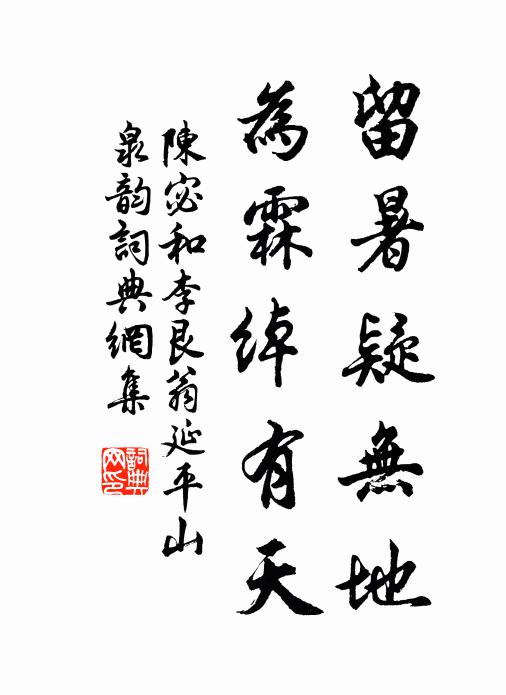 留暑疑無地
為霖綽有天
陳宓和李艮翁延平山
泉韵詞典網集
詞典网印